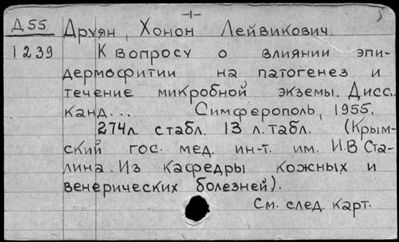 -1-
Д55 Друян, Хонон Лейвикович.
1239 К вопросу о влиянии эпи-
дермофитии на патогенез и
течение микробной экземы. Дисс.
канд... Симферополь, 1955.
274л. стабл. 13 л.табл. (Крым-
ский гос. мед. ин-т. им. И.В Ста-
лина. Из кафедры кожных и
венерических болезней).
См. след. карт.